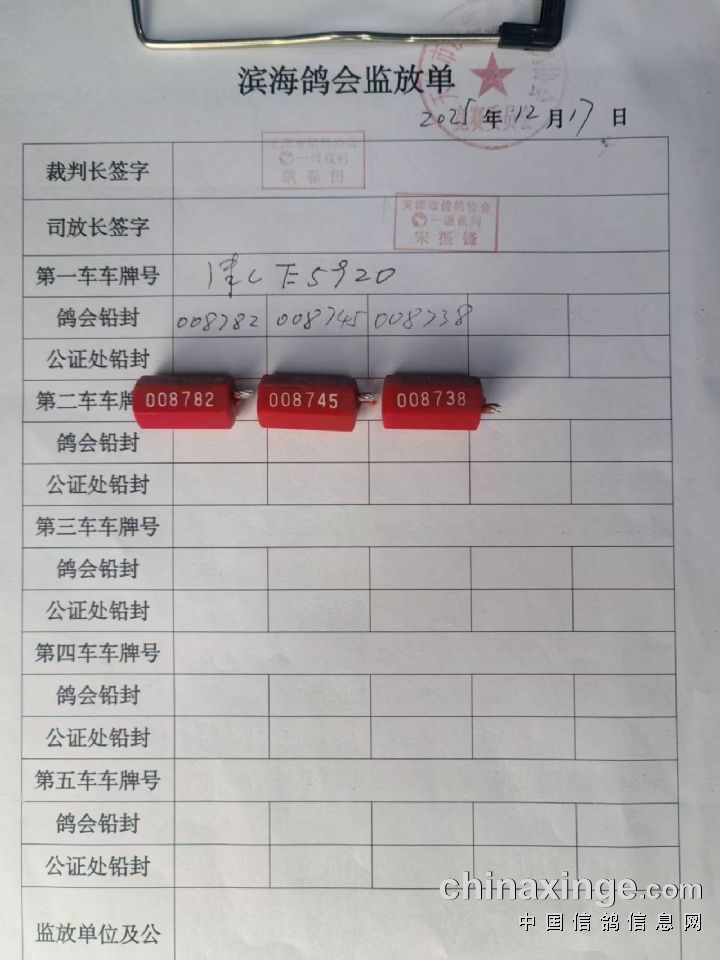 滨海鸽会监放单
2025年12月17日
竞赛委员会
裁判长签字
天津市信鸽协会
一级裁判
司放长签字
天津市信鸽协会
一级裁判
宋振锋
第一车车牌号 津CE5920
鸽会铅封 008782 008745 008738
公证处铅封
008782 008745 008738
第二车车牌
鸽会铅封
公证处铅封
第三车车牌号
鸽会铅封
公证处铅封
第四车车牌号
鸽会铅封
公证处铅封
第五车车牌号
鸽会铅封
公证处铅封
监放单位及公
chinaxinge.com
中国信鸽信息网